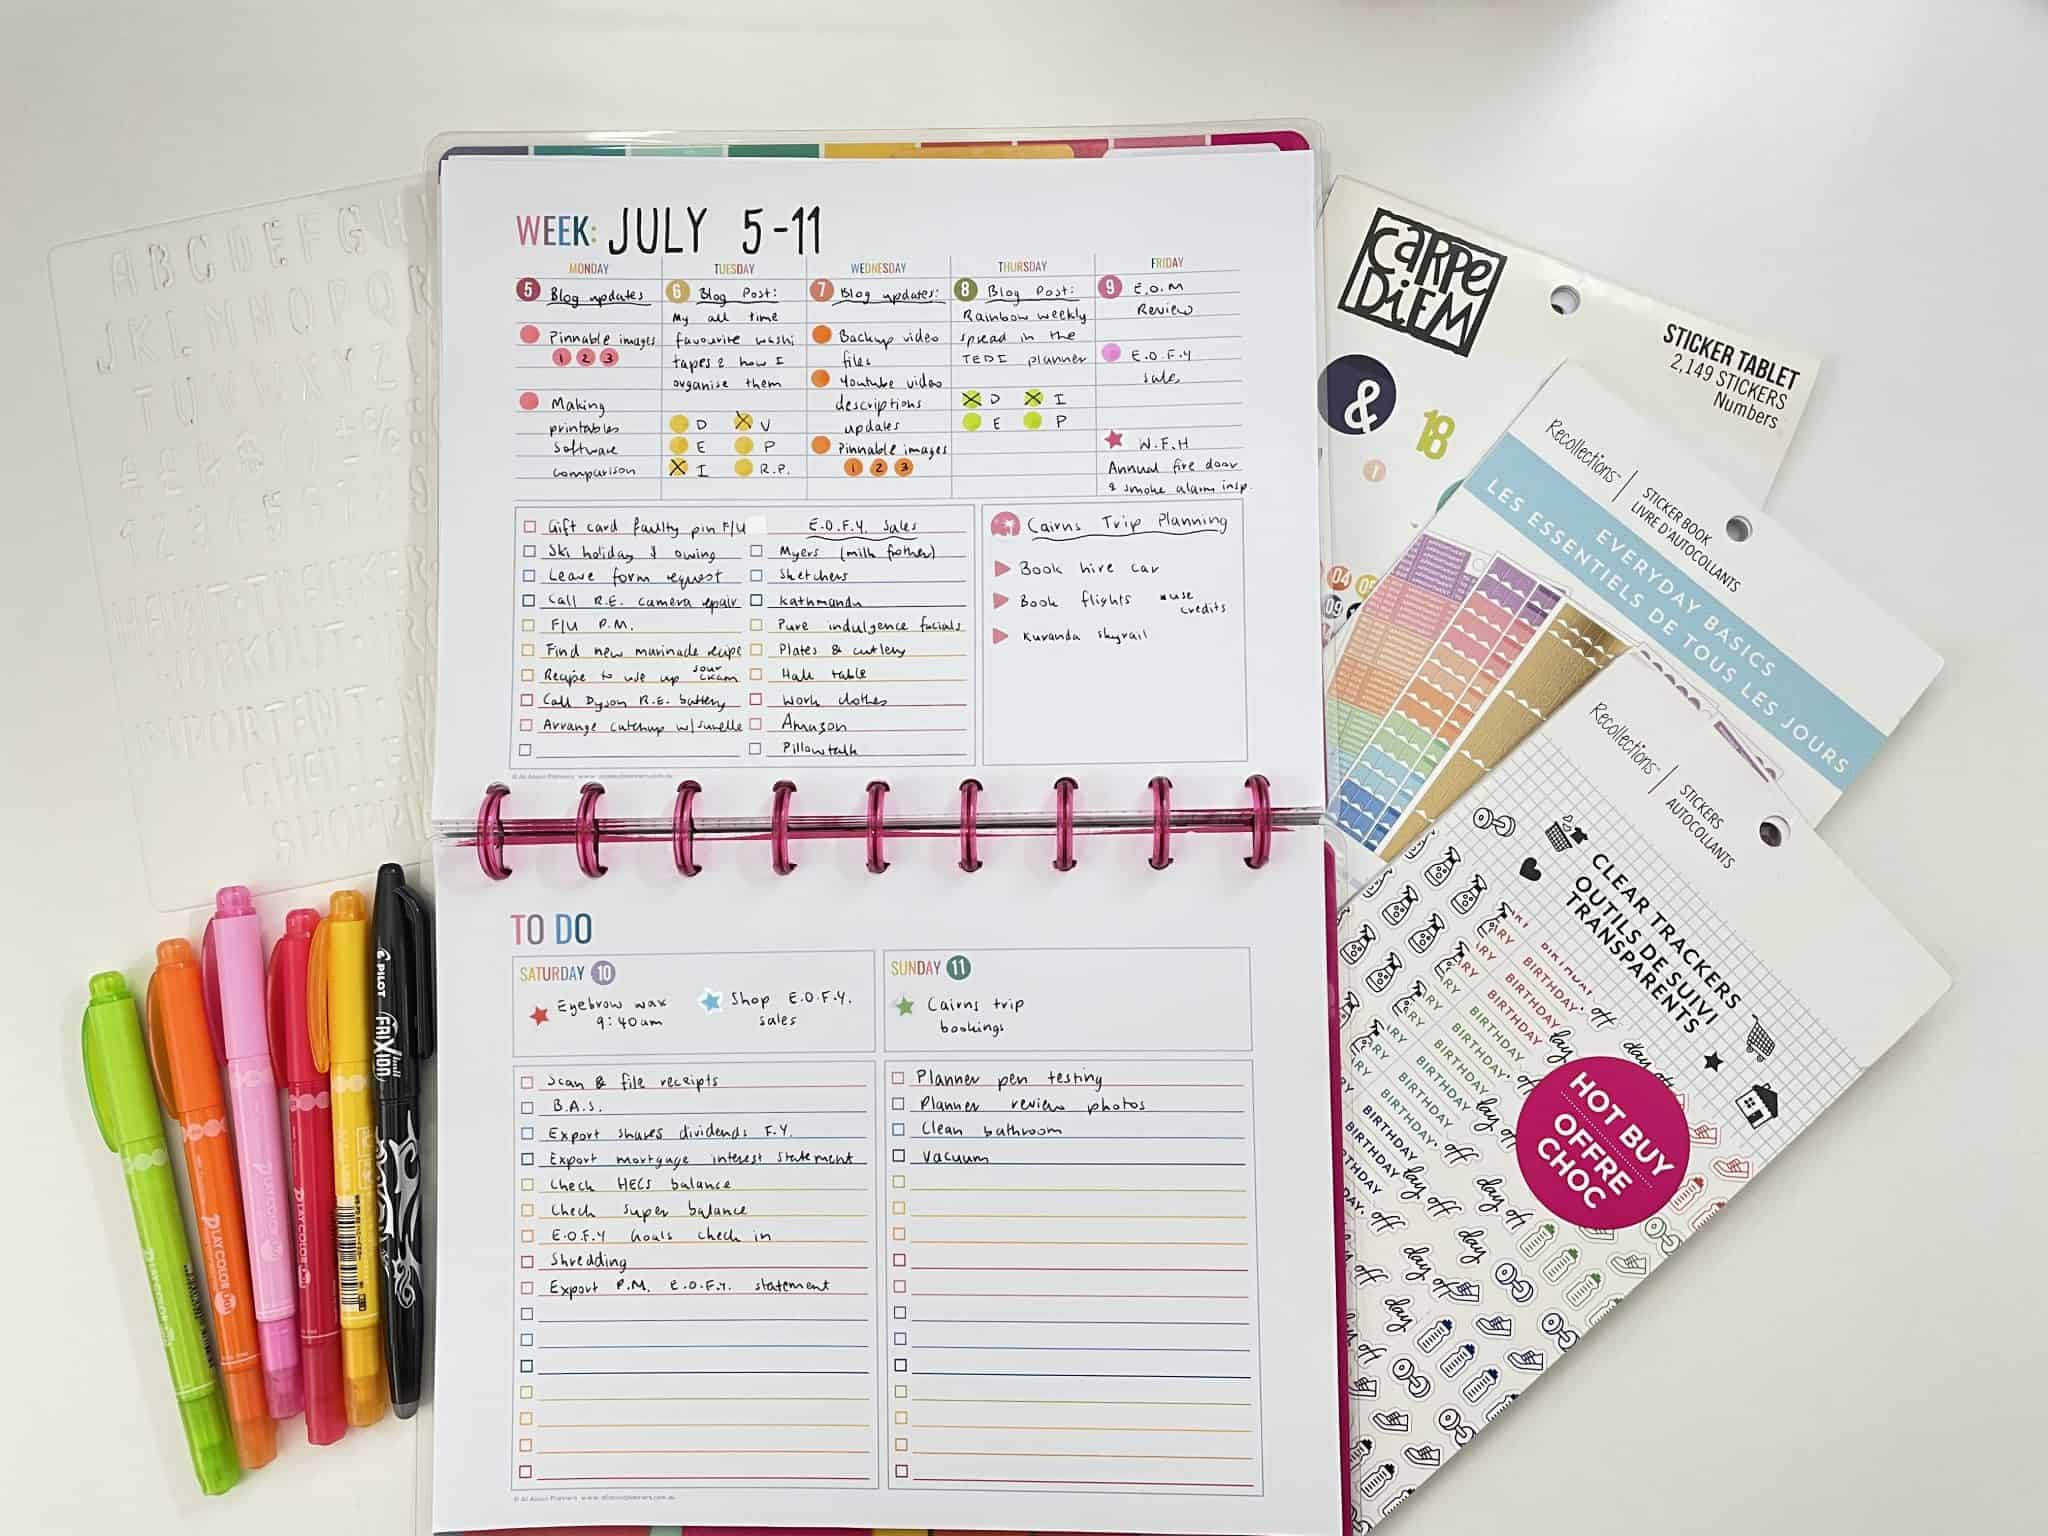 WEEK: JULY 5-11
MONDAY
5 Blog updates
Pinnable images
1 2 3
Making
printables
Software
comparison
TUESDAY
6 Blog Post:
My all time
favourite washi
tapes & how I
organise them
D V
E P
I R.P.
WEDNESDAY
7 Blog updates:
Backup video
files
Youtube video
descriptions
updates
Pinnable images
1 2 3
THURSDAY
8 Blog Post:
Rainbow weekly
spread in the
TEDI planner
D I
E P
FRIDAY
9 E.O.M
Review
E.O.F.Y
Sales
W.F.H
Annual fire door
& smoke alarm insp.
Gift card faulty pin F/U
Ski holiday $ owing
Leave form request
Call R.E. camera repair
F/U P.M.
Find new marinade recipe
Recipe to use up sour cream
Call Dyson R.E. battery
Arrange catchup w/
E.O.F.Y. Sales
Myers (milk frother)
Sketchers
Kathmandu
Pure indulgence facials
Plates & cutlery
Hall table
Work clothes
Amazon
Pillowtalk
Cairns Trip Planning
Book hire car
Book flights *use
credits
Kuranda skyrail
© All About Planners www.allaboutplanners.com.au
TO DO
SATURDAY 10
Eyebrow wax
9:40am
Shop E.O.F.Y.
sales
SUNDAY 11
Cairns trip
bookings
Scan & file receipts
B.A.S.
Export shares dividends F.Y.
Export mortgage interest statement
Check HECS balance
Check super balance
E.O.F.Y Goals check in
Shredding
Export P.M. E.O.F.Y. statement
Planner pen testing
Planner review photos
Clean bathroom
Vacuum
© All About Planners www.allaboutplanners.com.au
A B C D E F G H
J K L M N O P Q
T U V W X Y Z
PLAYCOLOR
PLAYCOLOR
PLAYCOLOR
PLAYCOLOR
PILOT
FRIXION ball
CARPE
DIEM
STICKER TABLET
2,149 STICKERS
Numbers
&
18
1
04
05
09
Recollections™
STICKER BOOK
LIVRE D'AUTOCOLLANTS
EVERYDAY BASICS
LES ESSENTIELS DE TOUS LES JOURS
Recollections™
STICKERS
AUTOCOLLANTS
CLEAR TRACKERS
OUTILS DE SUIVI
TRANSPARENTS
HOT BUY
OFFRE
CHOC
BIRTHDAY
BIRTHDAY
BIRTHDAY
BIRTHDAY
BIRTHDAY
BIRTHDAY
BIRTHDAY
BIRTHDAY
BIRTHDAY
day off
day off
day off
day off
day off